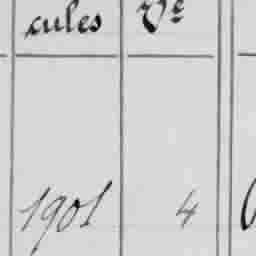 cules Vᵉ
1901 4